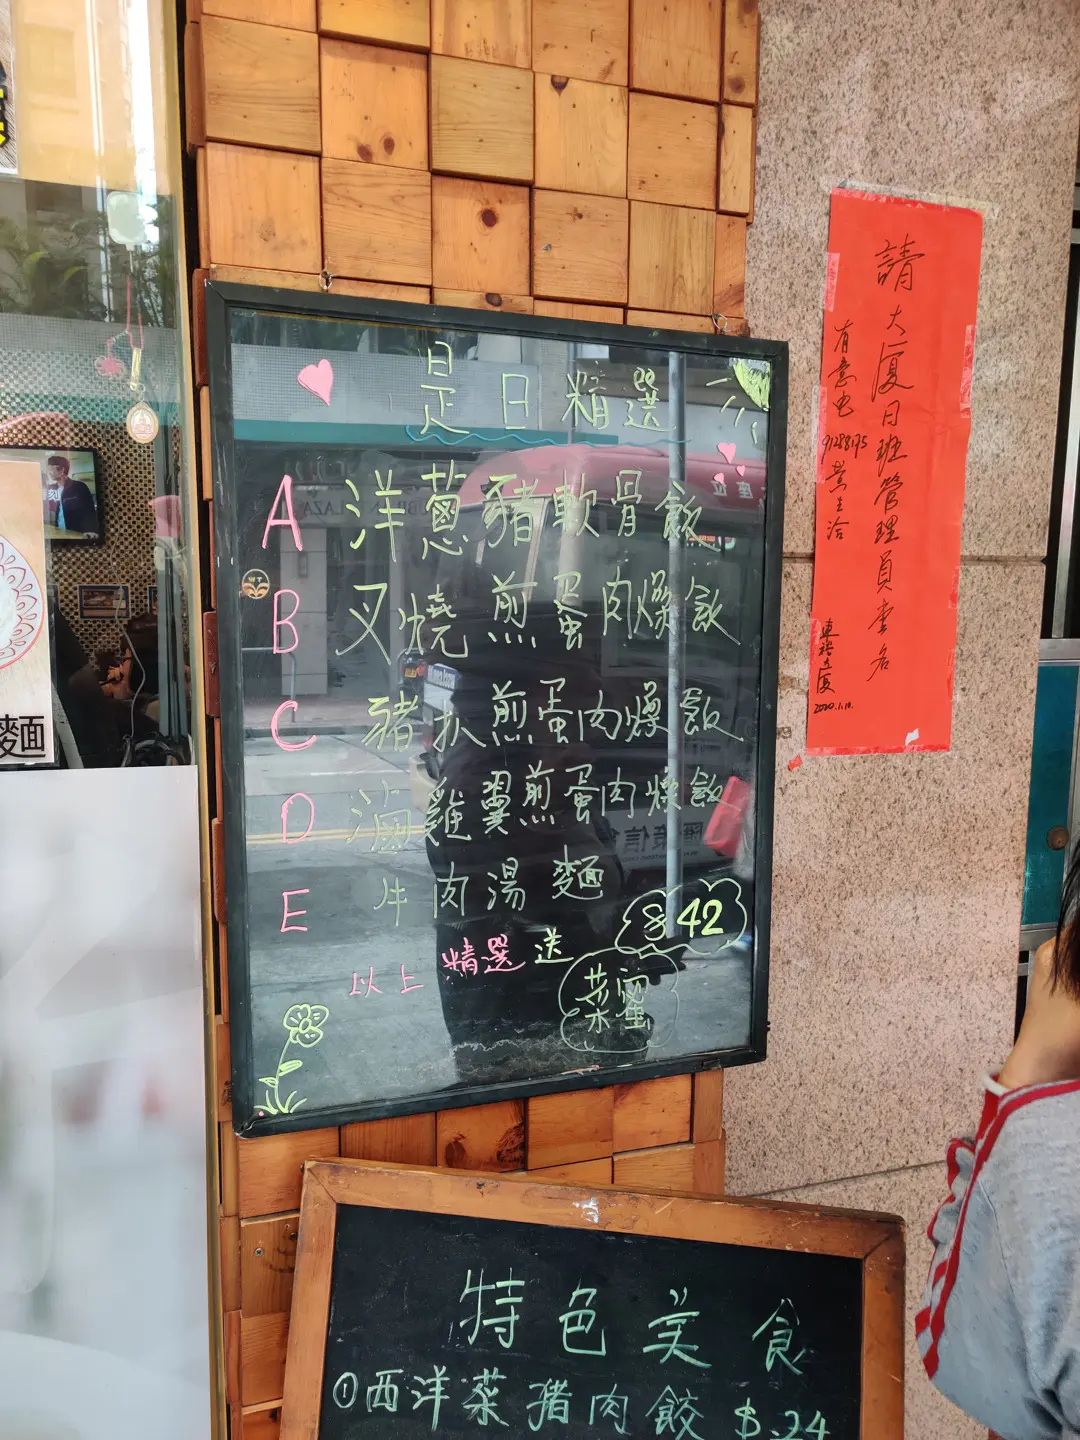 是日精選 六
A 洋蔥豬軟骨飯
B 叉燒煎蛋肉燥飯
C 豬扒煎蛋肉燥飯
D 滷雞翼煎蛋肉燥飯
E 牛肉湯麵
$42
以上精選送
菜蜜
特色美食
①西洋菜猪肉餃 $24
請大廈日班管理員壹名
有意电
2020.1.10.
麵